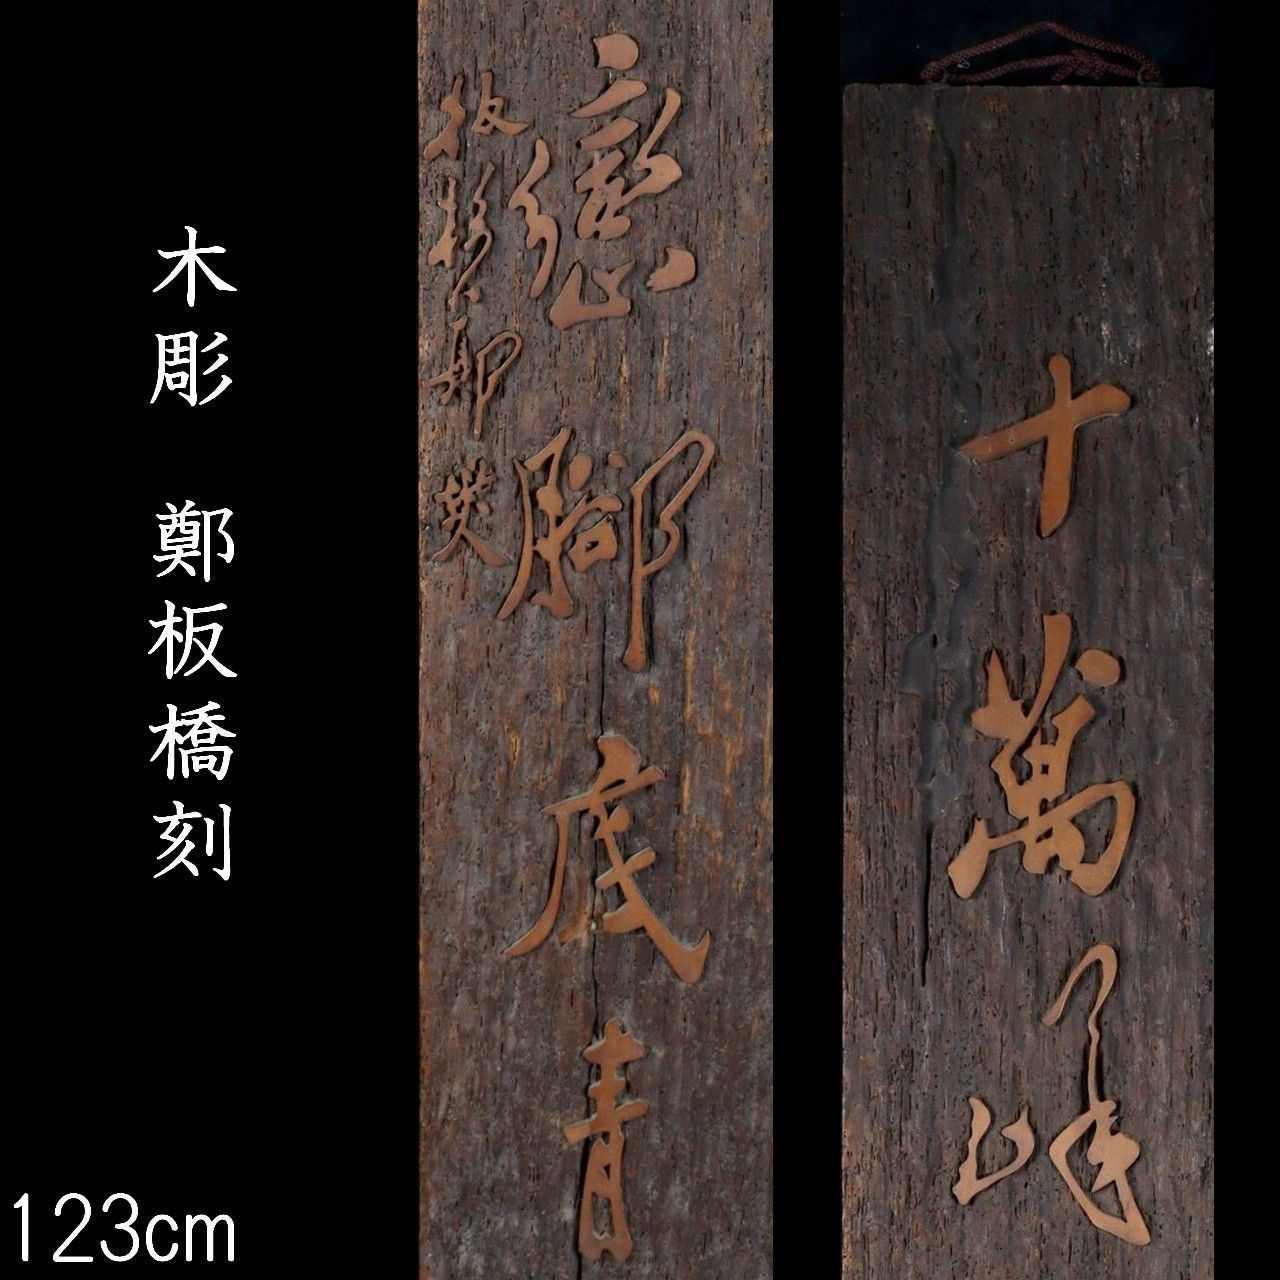 十萬峰
巒腳底青
板橋鄭燮
木彫 鄭板橋刻
123cm